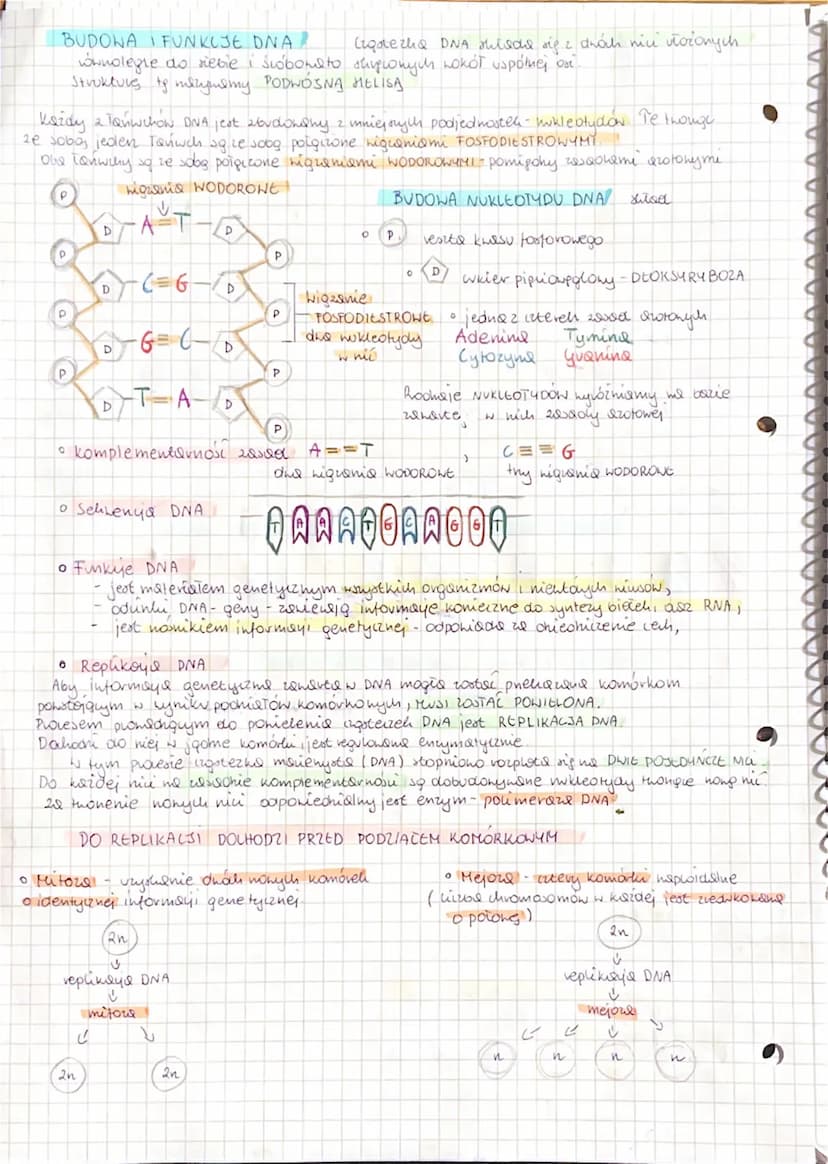 BUDOWA I FUNKCJE DNA
Cząsteczka DNA składa się z dwóch nici ułożonych
równolegle do siebie i śrubowato skręconych wokół wspólnej osi.
Strukturę tę nazywamy PODWÓJNĄ HELISĄ
Każdy z łańuchów DNA jest zbudowany z mniejszych podjednostek - nukleotydów Te tworząc
ze sobą jeden łańuch są ze sobą połączone wiązaniami FOSFODIESTROWYMI.
Oba łańuchy są ze sobą połączone wiązaniami WODOROWYMI - pomiędzy zasadami azotowymi
wiązania WODOROWE
P D A = T D P
P D C ≡ G D P
P D G ≡ C D P
P D T = A D P
P
wiązanie
FOSFODIESTROWE
dwa nukleotydy
w nić
BUDOWA NUKLEOTYDU DNA skład
P reszta kwasu fosforowego
D cukier pięciowęglowy - DEOKSYRYBOZA
jedna z czterech zasad azotowych
Adenina Tymina
Cytozyna Guanina
Rodzaje NUKLEOTYDÓW wyróżniamy na bazie
zawartej w nich zasady azotowej
Komplementarność zasad A = = T , C ≡ ≡ G
dwa wiązania WODOROWE trzy wiązania WODOROWE
Sekwencja DNA
T A A C T G C A G G T
Funkcje DNA
- jest materiałem genetycznym wszystkich organizmów i niektórych wirusów,
- odcinki DNA - geny - zawierają informacje konieczne do syntezy białek i asz RNA,
- jest nośnikiem informacji genetycznej - odpowiada za dziedziczenie cech,
Replikacja DNA
Aby informacja genetyczna zawarta w DNA mogła zostać przekazana komórkom
powstającym w wyniku podziałów komórkowych, MUSI ZOSTAĆ POWIELONA.
Procesem prowadzącym do powielenia cząsteczek DNA jest REPLIKACJA DNA.
Dochodzi do niej w jądrze komórki i jest regulowana enzymatycznie.
W tym procesie cząsteczka macierzysta (DNA) stopniowo rozplata się na DWIE POJEDYŃCZE NICI.
Do każdej nici na zasadzie komplementarności są dobudowywane nukleotydy tworząc nową nić.
Za tworzenie nowych nici odpowiedzialny jest enzym - polimeraza DNA
DO REPLIKACJI DOCHODZI PRZED PODZIAŁEM KOMÓRKOWYM
Mitoza - uzyskanie dwóch nowych komórek
o identycznej informacji genetycznej.
2n
replikacja DNA
mitoza
2n 2n
Mejoza - cztery komórki haploidalne
(liczba chromosomów w każdej jest zredukowana
o połowę)
2n
replikacja DNA
mejoza
n n n n